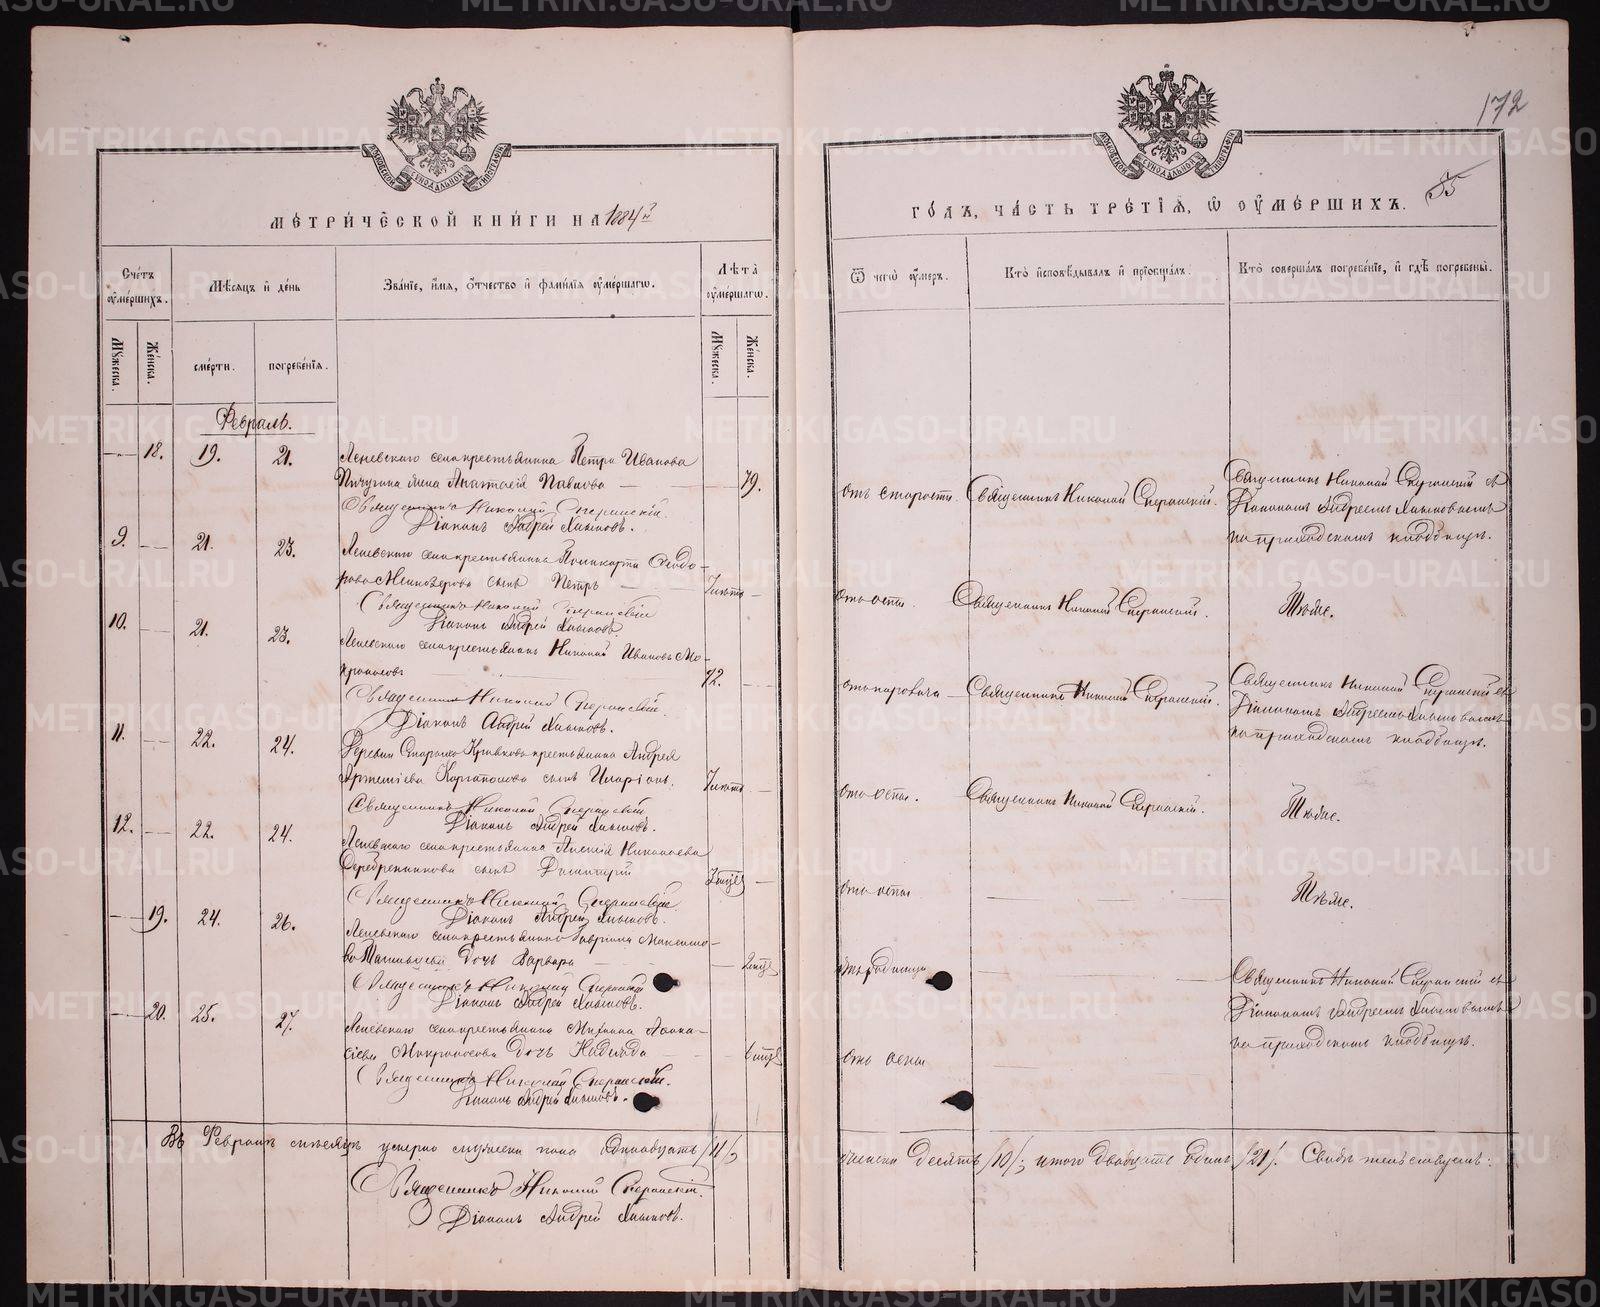 172
85
МЕТРИЧЕСКОЙ КНИГИ НА 1884й
ГОДЪ, ЧАСТЬ ТРЕТІЯ, Ѡ ОУМЕРШИХЪ.
МОСКОВСКОЙ СУНОДАЛЬНОЙ ТИПОГРАФІИ
МОСКОВСКОЙ СУНОДАЛЬНОЙ ТИПОГРАФІИ
Счетъ оумершихъ.
Мѣсяцъ и день
Званіе, имя, отчество и фамилія оумершагѡ.
Лѣта оумершагѡ.
Мужеска.
Женска.
смерти.
погребенія.
Мужеска.
Женска.
Ѿ чегѡ оумеръ.
Кто исповѣдывалъ и пріобщалъ.
Кто совершалъ погребеніе, и гдѣ погребены.
Февраль.
18. 19. 21. Леневскаго села крестьянина Петра Иванова
Пичугина жена Анастасія Павлова 79.
Священникъ Николай Сперанскій.
Діаконъ Андрей Хлыновъ.
отъ старости. Священникъ Николай Сперанскій.
Священникъ Николай Сперанскій съ
Діакономъ Андреемъ Хлыновымъ
на приходскомъ кладбищѣ.
9. 21. 23. Леневскаго села крестьянина Поликарпа Ѳеодо-
рова сынъ Петръ 7 лѣтъ
Священникъ Николай Сперанскій
Діаконъ Андрей Хлыновъ.
отъ оспы. Священникъ Николай Сперанскій.
Тѣже.
10. 21. 23. Леневскаго села крестьянинъ Николай Ивановъ Мо-
кроносовъ 72.
Священникъ Николай Сперанскій.
Діаконъ Андрей Хлыновъ.
Священникъ Николай Сперанскій.
Священникъ Николай Сперанскій съ
Діакономъ Андреемъ Хлыновымъ
на приходскомъ кладбищѣ.
11. 22. 24. Деревни крестьянина Андрея
Артеміева Каргаполова сынъ Иларіонъ. 7 лѣтъ
Священникъ Николай Сперанскій
Діаконъ Андрей Хлыновъ.
отъ оспы. Священникъ Николай Сперанскій.
Тѣже.
12. 22. 24. Леневскаго села крестьянина Алексія Николаева
Серебренникова сынъ Димитрій
Священникъ Николай Сперанскій.
Діаконъ Андрей Хлыновъ.
отъ оспы
Тѣже.
19. 24. 26. Леневскаго села крестьянина Гавріила Максимо-
ва дочь Варвара
Священникъ Николай Сперанскій
Діаконъ Андрей Хлыновъ.
отъ родимца
Священникъ Николай Сперанскій съ
Діакономъ Андреемъ Хлыновымъ
на приходскомъ кладбищѣ.
20. 25. 27. Леневскаго села крестьянина
Мокроносова дочь Надежда
Священникъ Николай Сперанскій.
Діаконъ Андрей Хлыновъ.
отъ оспы
Въ Февралѣ мѣсяцѣ умерло мужеска пола одинадцать /11/,
женска десять /10/; итого двадцать одинъ /21/. Свидѣтельствуемъ:
Священникъ Николай Сперанскій.
Діаконъ Андрей Хлыновъ.
METRIKI.GASO-URAL.RU